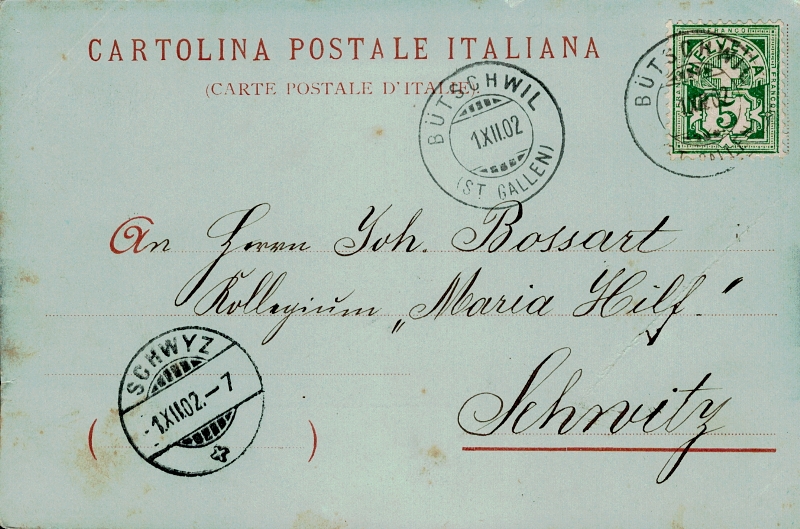 CARTOLINA POSTALE ITALIANA
(CARTE POSTALE D'ITALIE)
BÜTSCHWIL
1.XII.02
(ST. GALLEN)
BÜTSCHWIL
HELVETIA
FRANCO
5
FRANCO
An Herrn Joh. Bossart
Kollegium „Maria Hilf."
Schwitz
SCHWYZ
-1.XII.02.-7
( )